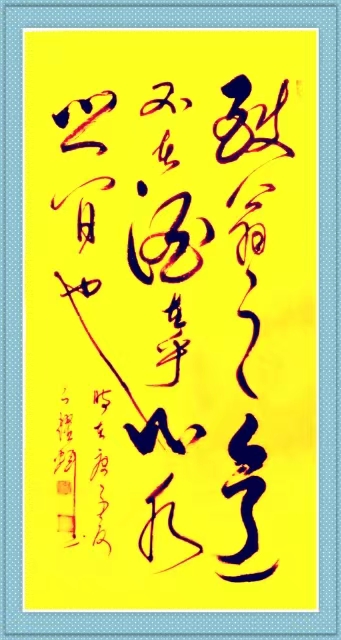 醉翁之意
不在酒在乎山水
之間也
時在庚子